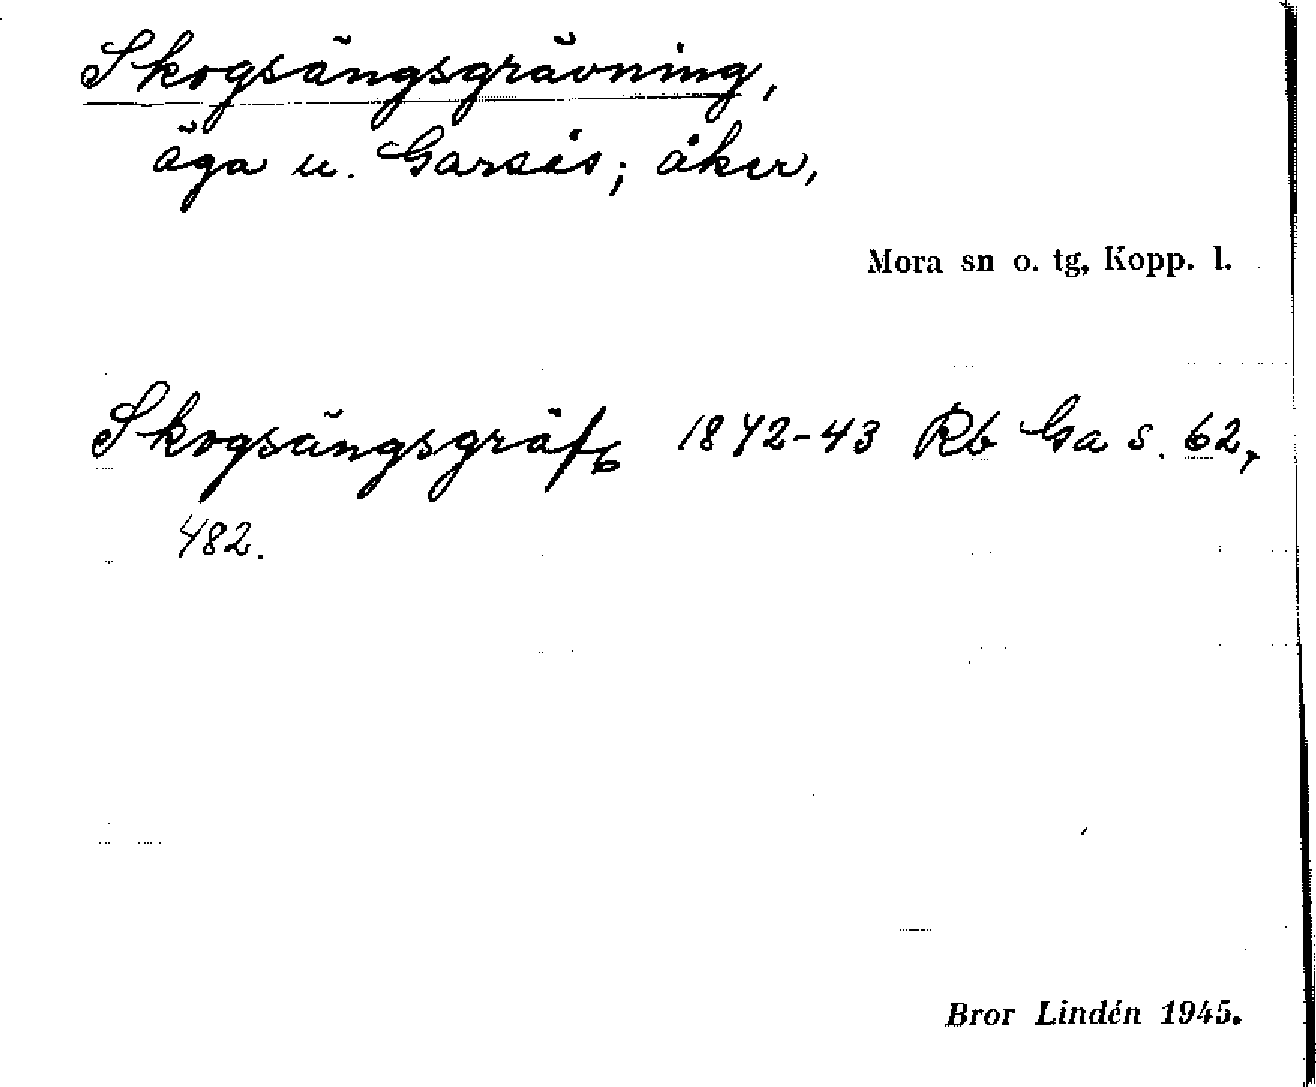 Skogsängsgrävning,
äga u. Garsås; åker,
Mora sn o. tg, Kopp. l.
Skogsängsgräfn 1842-43 Rb Ga s. 62,
482.
Bror Lindén 1945.